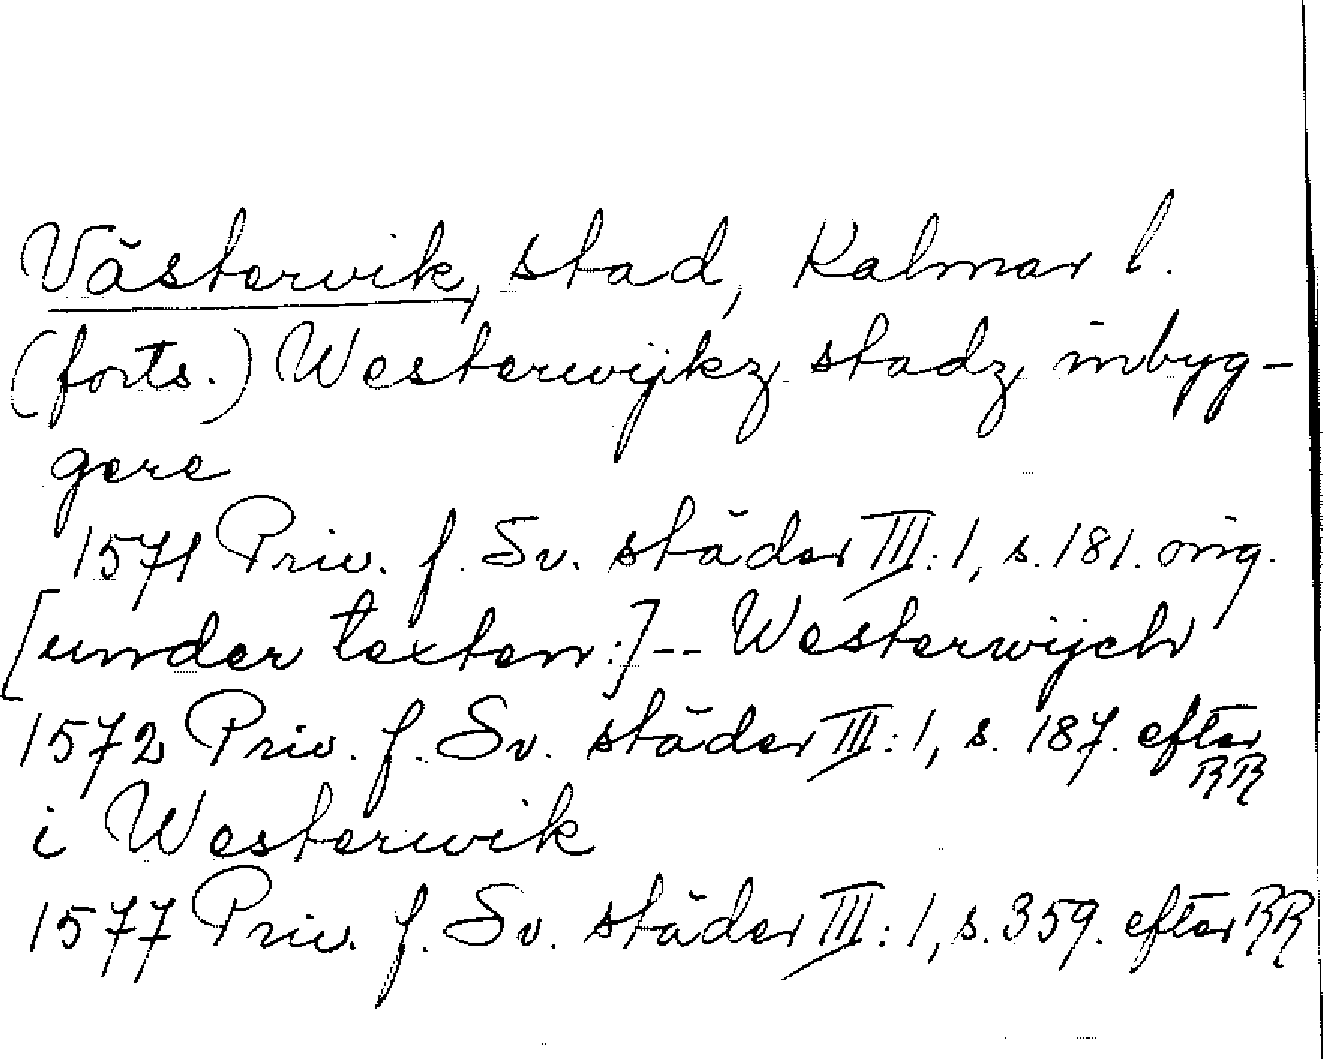 Västervik, stad, Kalmar l.
(forts.) Westerwijkz stadz inbyg-
gere
1571 Priv. f. Sv. städer III: 1, s. 181. orig.
[under texten:] -- Westerwijch
1572 Priv. f. Sv. städer III: 1, s. 187. efter RR
i Westerwik
1577 Priv. f. Sv. städer III: 1, s. 359. efter RR